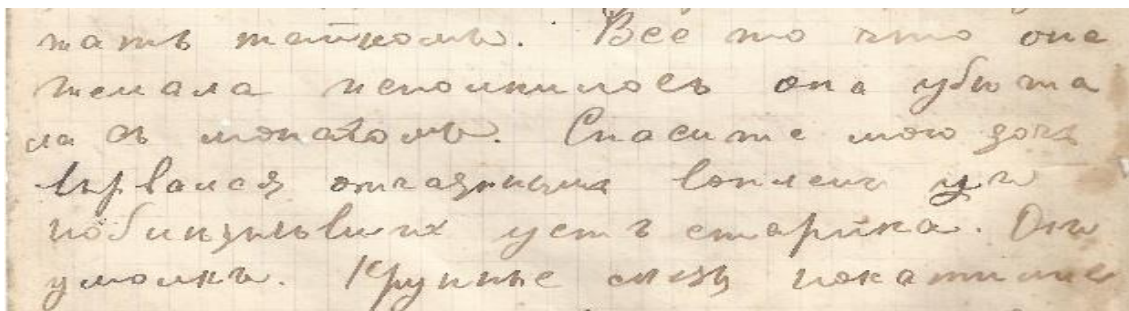 жать тайкомъ. Все то что она
желала исполнилось она убѣжа
ла съ монахомъ. Спасите мою дочь
вырвался отчаянный вопль изъ
побледнѣвшихъ устъ старика. Онъ
умолкъ. Крупные слезы покатились